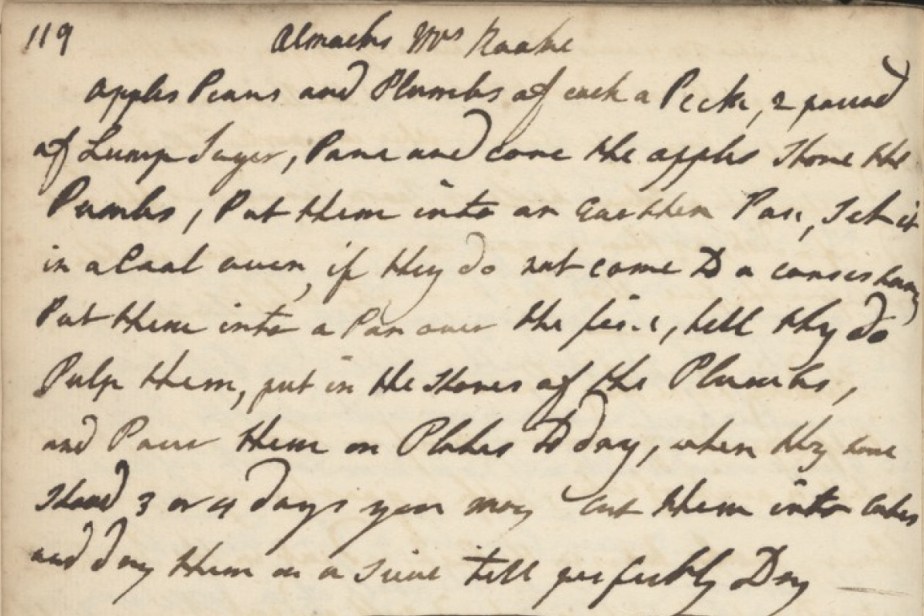 119 Almacks Mrs
Apples Pears and Plumbs of each a Peck, 2 pound
of Lump Suger, Pare and core the apples Stone the
Pumbs, Put them into an Earthen Pan, Set it
in a Cool oven, if they do not come To a
Put them into a Pan over the fire, till thy do
Pulp them, put in the Stones of the Plumbs,
and Pour them on Plates To dry, when thy have
Stood 3 or 4 days you may cut them into Cakes
and dry them on a Sieve till perfectly Dry